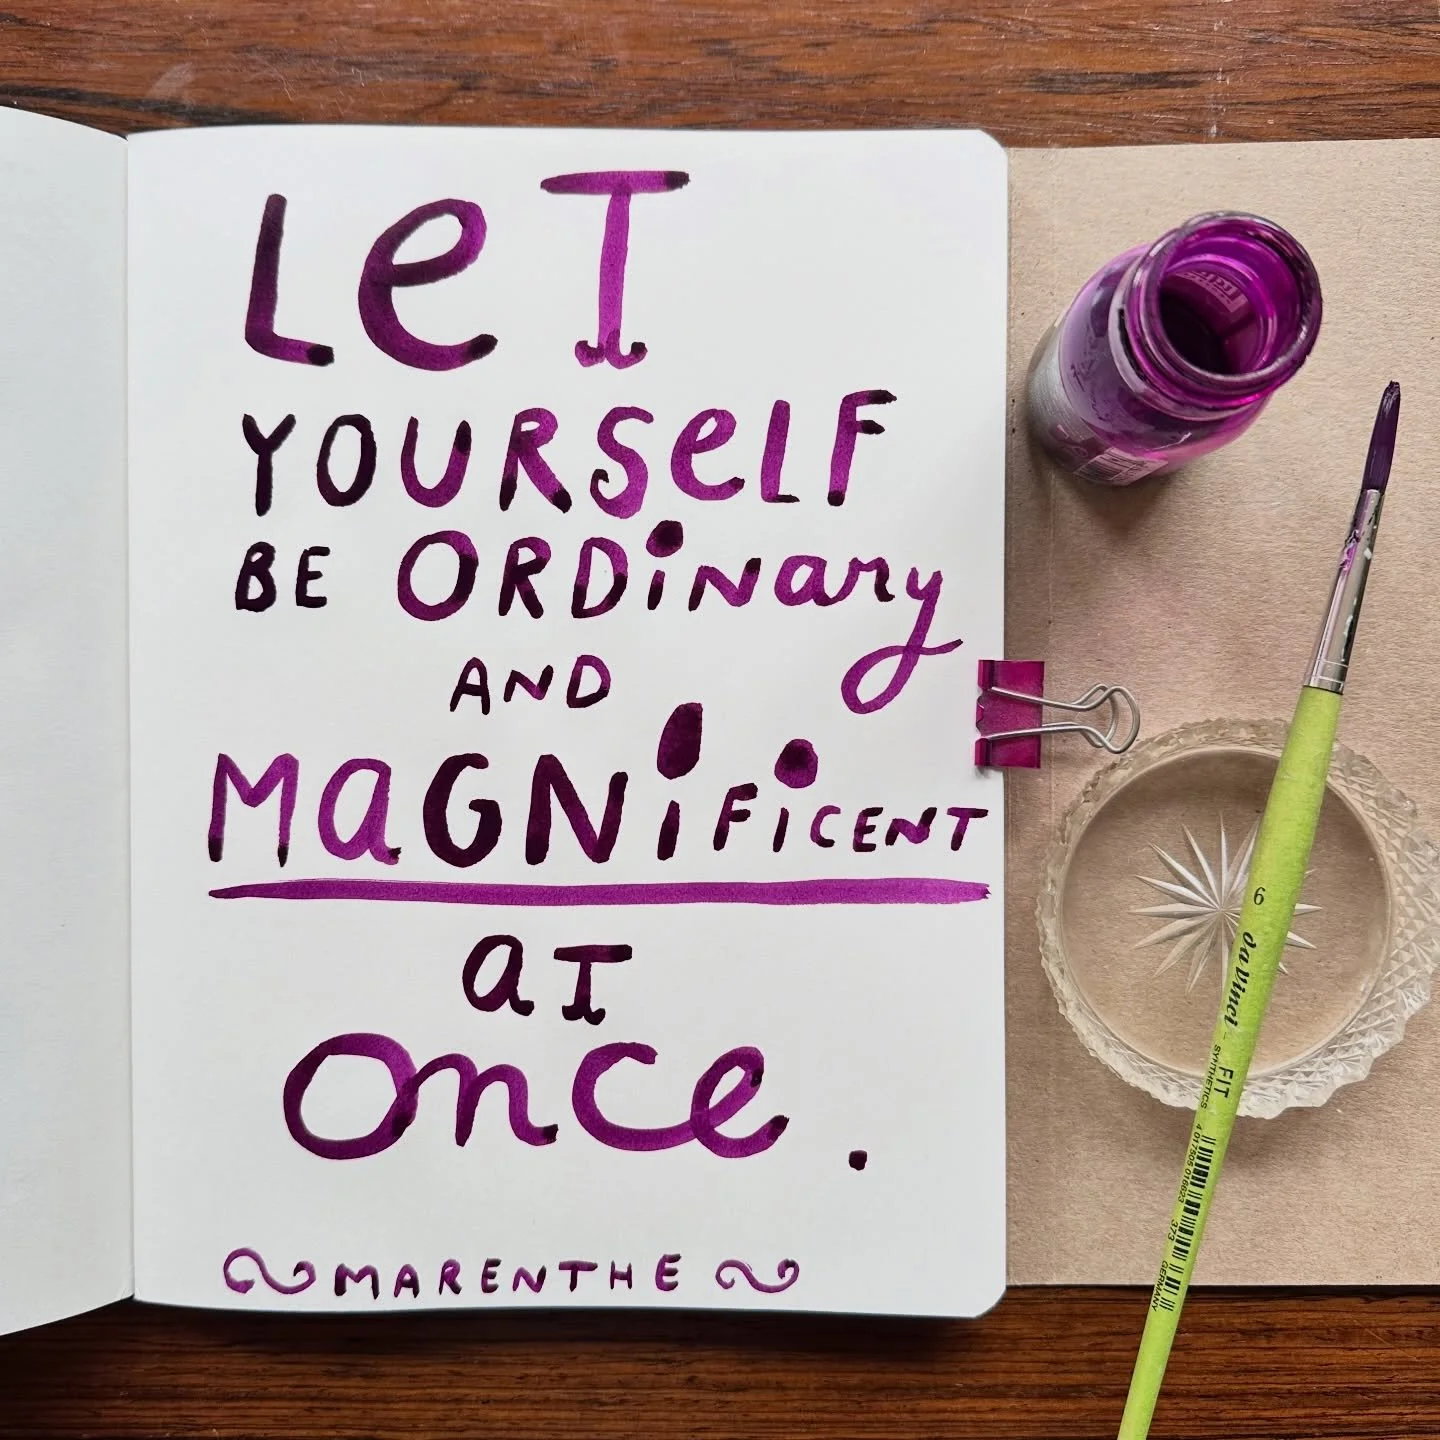 LeT
YOURSeLF
BE ORDiNary
AND
MaGNiFiCENT
aT
once.
MARENTHE
6 da Vinci - FIT
SYNTHETICS 4 017505 016623 373 GERMANY